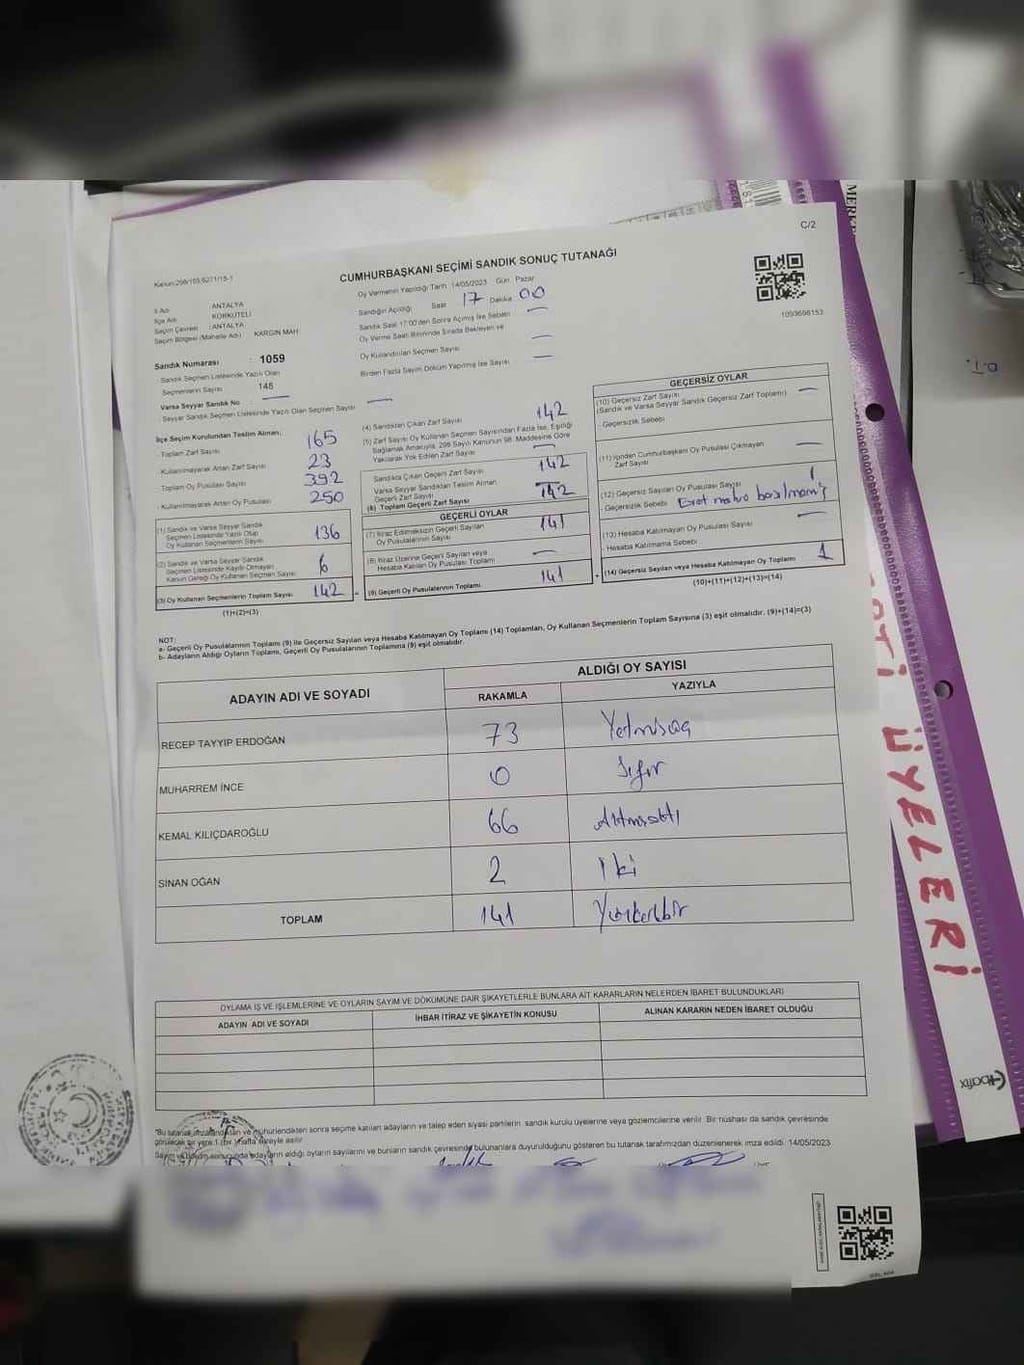 C/2
CUMHURBAŞKANI SEÇİMİ SANDIK SONUÇ TUTANAĞI
Oy Vermenin Yapıldığı Tarih 14/05/2023 Gün Pazar
Sandığın Açıldığı Saat 17 Dakika 00
Sandık Saat 17:00'den Sonra Açılmış İse Sebebi —
Oy Verme Saati Bitiminde Sırada Bekleyen ve
Oy Kullandırılan Seçmen Sayısı —
Birden Fazla Sayım Döküm Yapılmış İse Sayısı —
İl Adı ANTALYA
İlçe Adı KORKUTELİ
Seçim Çevresi : ANTALYA
Seçim Bölgesi (Mahalle Adı) KARGIN MAH
1093696153
Sandık Numarası : 1059
Sandık Seçmen Listesinde Yazılı Olan
Seçmenlerin Sayısı 148
Varsa Seyyar Sandık No : —
Seyyar Sandık Seçmen Listesinde Yazılı Olan Seçmen Sayısı —
İlçe Seçim Kurulundan Teslim Alınan;
- Toplam Zarf Sayısı 165
- Kullanılmayarak Artan Zarf Sayısı 23
- Toplam Oy Pusulası Sayısı 392
- Kullanılmayarak Artan Oy Pusulası 250
(1) Sandık ve Varsa Seyyar Sandık
Seçmen Listesinde Yazılı Olup
Oy Kullanan Seçmenlerin Sayısı 136
(2) Sandık ve Varsa Seyyar Sandık
Seçmen Listesinde Kayıtlı Olmayan
Kanun Gereği Oy Kullanan Seçmen Sayısı 6
(3) Oy Kullanan Seçmenlerin Toplam Sayısı 142
(1)+(2)=(3)
(4) Sandıktan Çıkan Zarf Sayısı 142
(5) Zarf Sayısı Oy Kullanan Seçmen Sayısından Fazla İse, Eşitliği
Sağlamak Amacıyla, 298 Sayılı Kanunun 98. Maddesine Göre
Yakılarak Yok Edilen Zarf Sayısı —
Sandıkta Çıkan Geçerli Zarf Sayısı 142
Varsa Seyyar Sandıktan Teslim Alınan
Geçerli Zarf Sayısı —
(6) Toplam Geçerli Zarf Sayısı 142
GEÇERLİ OYLAR
(7) İtiraz Edilmeksizin Geçerli Sayılan
Oy Pusulalarının Sayısı 141
(8) İtiraz Üzerine Geçerli Sayılan veya
Hesaba Katılan Oy Pusulası Toplamı —
(9) Geçerli Oy Pusulalarının Toplamı 141
GEÇERSİZ OYLAR
(10) Geçersiz Zarf Sayısı
(Sandık ve Varsa Seyyar Sandık Geçersiz Zarf Toplamı) —
Geçersizlik Sebebi
(11) İçinden Cumhurbaşkanı Oy Pusulası Çıkmayan
Zarf Sayısı —
(12) Geçersiz Sayılan Oy Pusulası Sayısı 1
Geçersizlik Sebebi Evet mührü basılmamış
(13) Hesaba Katılmayan Oy Pusulası Sayısı —
Hesaba Katılmama Sebebi
(14) Geçersiz Sayılan veya Hesaba Katılmayan Oy Toplamı 1
(10)+(11)+(12)+(13)=(14)
NOT:
a- Geçerli Oy Pusulalarının Toplamı (9) ile Geçersiz Sayılan veya Hesaba Katılmayan Oy Toplamı (14) Toplamları, Oy Kullanan Seçmenlerin Toplam Sayısına (3) eşit olmalıdır. (9)+(14)=(3)
b- Adayların Aldığı Oyların Toplamı, Geçerli Oy Pusulalarının Toplamına (9) eşit olmalıdır.
ADAYIN ADI VE SOYADI ALDIĞI OY SAYISI
RAKAMLA YAZIYLA
RECEP TAYYİP ERDOĞAN 73 Yetmişüç
MUHARREM İNCE 0 Sıfır
KEMAL KILIÇDAROĞLU 66 Altmışaltı
SİNAN OĞAN 2 İki
TOPLAM 141 Yüzkırkbir
OYLAMA İŞ VE İŞLEMLERİNE VE OYLARIN SAYIM VE DÖKÜMÜNE DAİR ŞİKAYETLERLE BUNLARA AİT KARARLARIN NELERDEN İBARET BULUNDUKLARI
ADAYIN ADI VE SOYADI İHBAR İTİRAZ VE ŞİKAYETİN KONUSU ALINAN KARARIN NEDEN İBARET OLDUĞU
*Bu tutanak imzalandıktan ve mühürlendikten sonra seçime katılan adayların ve talep eden siyasi partilerin sandık kurulu üyelerine veya gözlemcilerine verilir. Bir nüshası da sandık çevresinde
görülecek bir yere 1 (bir) hafta süreyle asılır.
Sayım ve döküm sonucunda adayların aldığı oyların sayılarını ve bunların sandık çevresinde bulunanlara duyurulduğunu gösteren bu tutanak tarafımızdan düzenlenerek imza edildi. 14/05/2023
ÜYELERİ
bafix